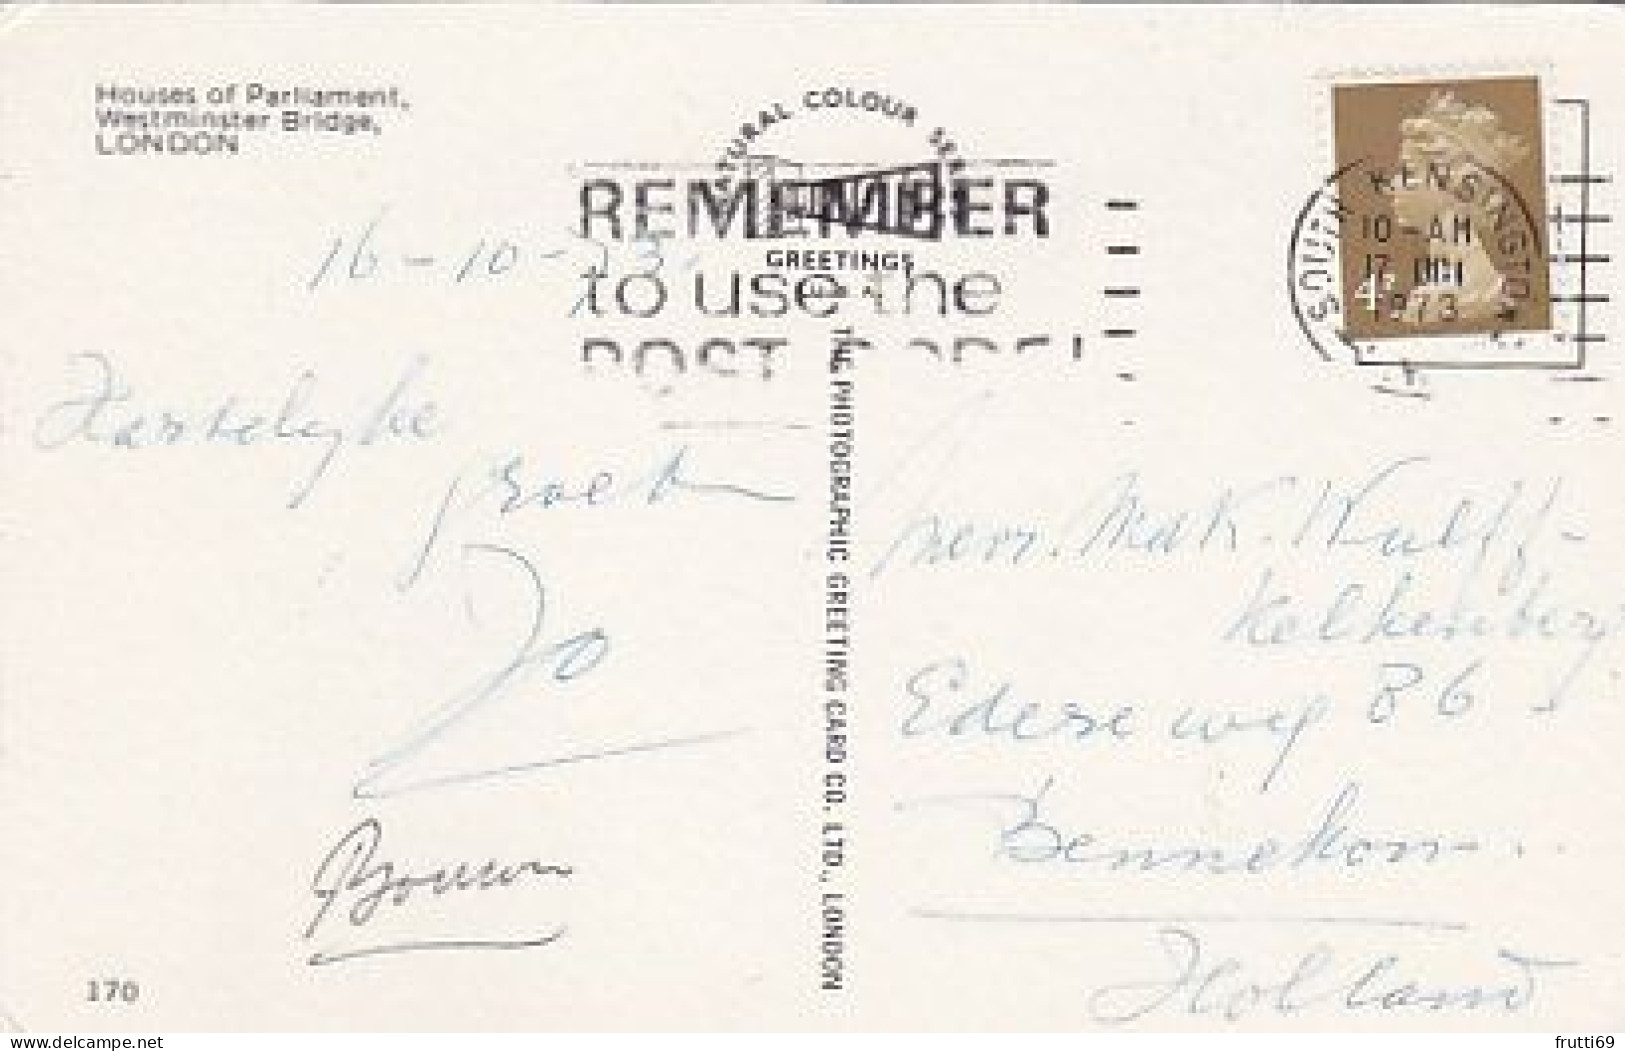 Houses of Parliament,
Westminster Bridge,
LONDON
NATURAL COLOUR SERIES
GREETINGS
REMEMBER
to use the
POST CODE
SOUTH KENSINGTON
10-AM
17 OCT
1973
4P
16-10-73.
Hartelijke
groeten
Jo
Bouwen
THE PHOTOGRAPHIC GREETING CARD CO. LTD., LONDON
Fam. Wulff-
Kelkenberg
Edese weg 86
Bennekom
Holland
170
www.delcampe.net
frutti69